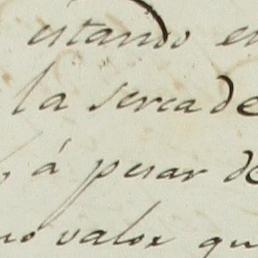 estando en
la serca de
, á pesar de
no valor qu